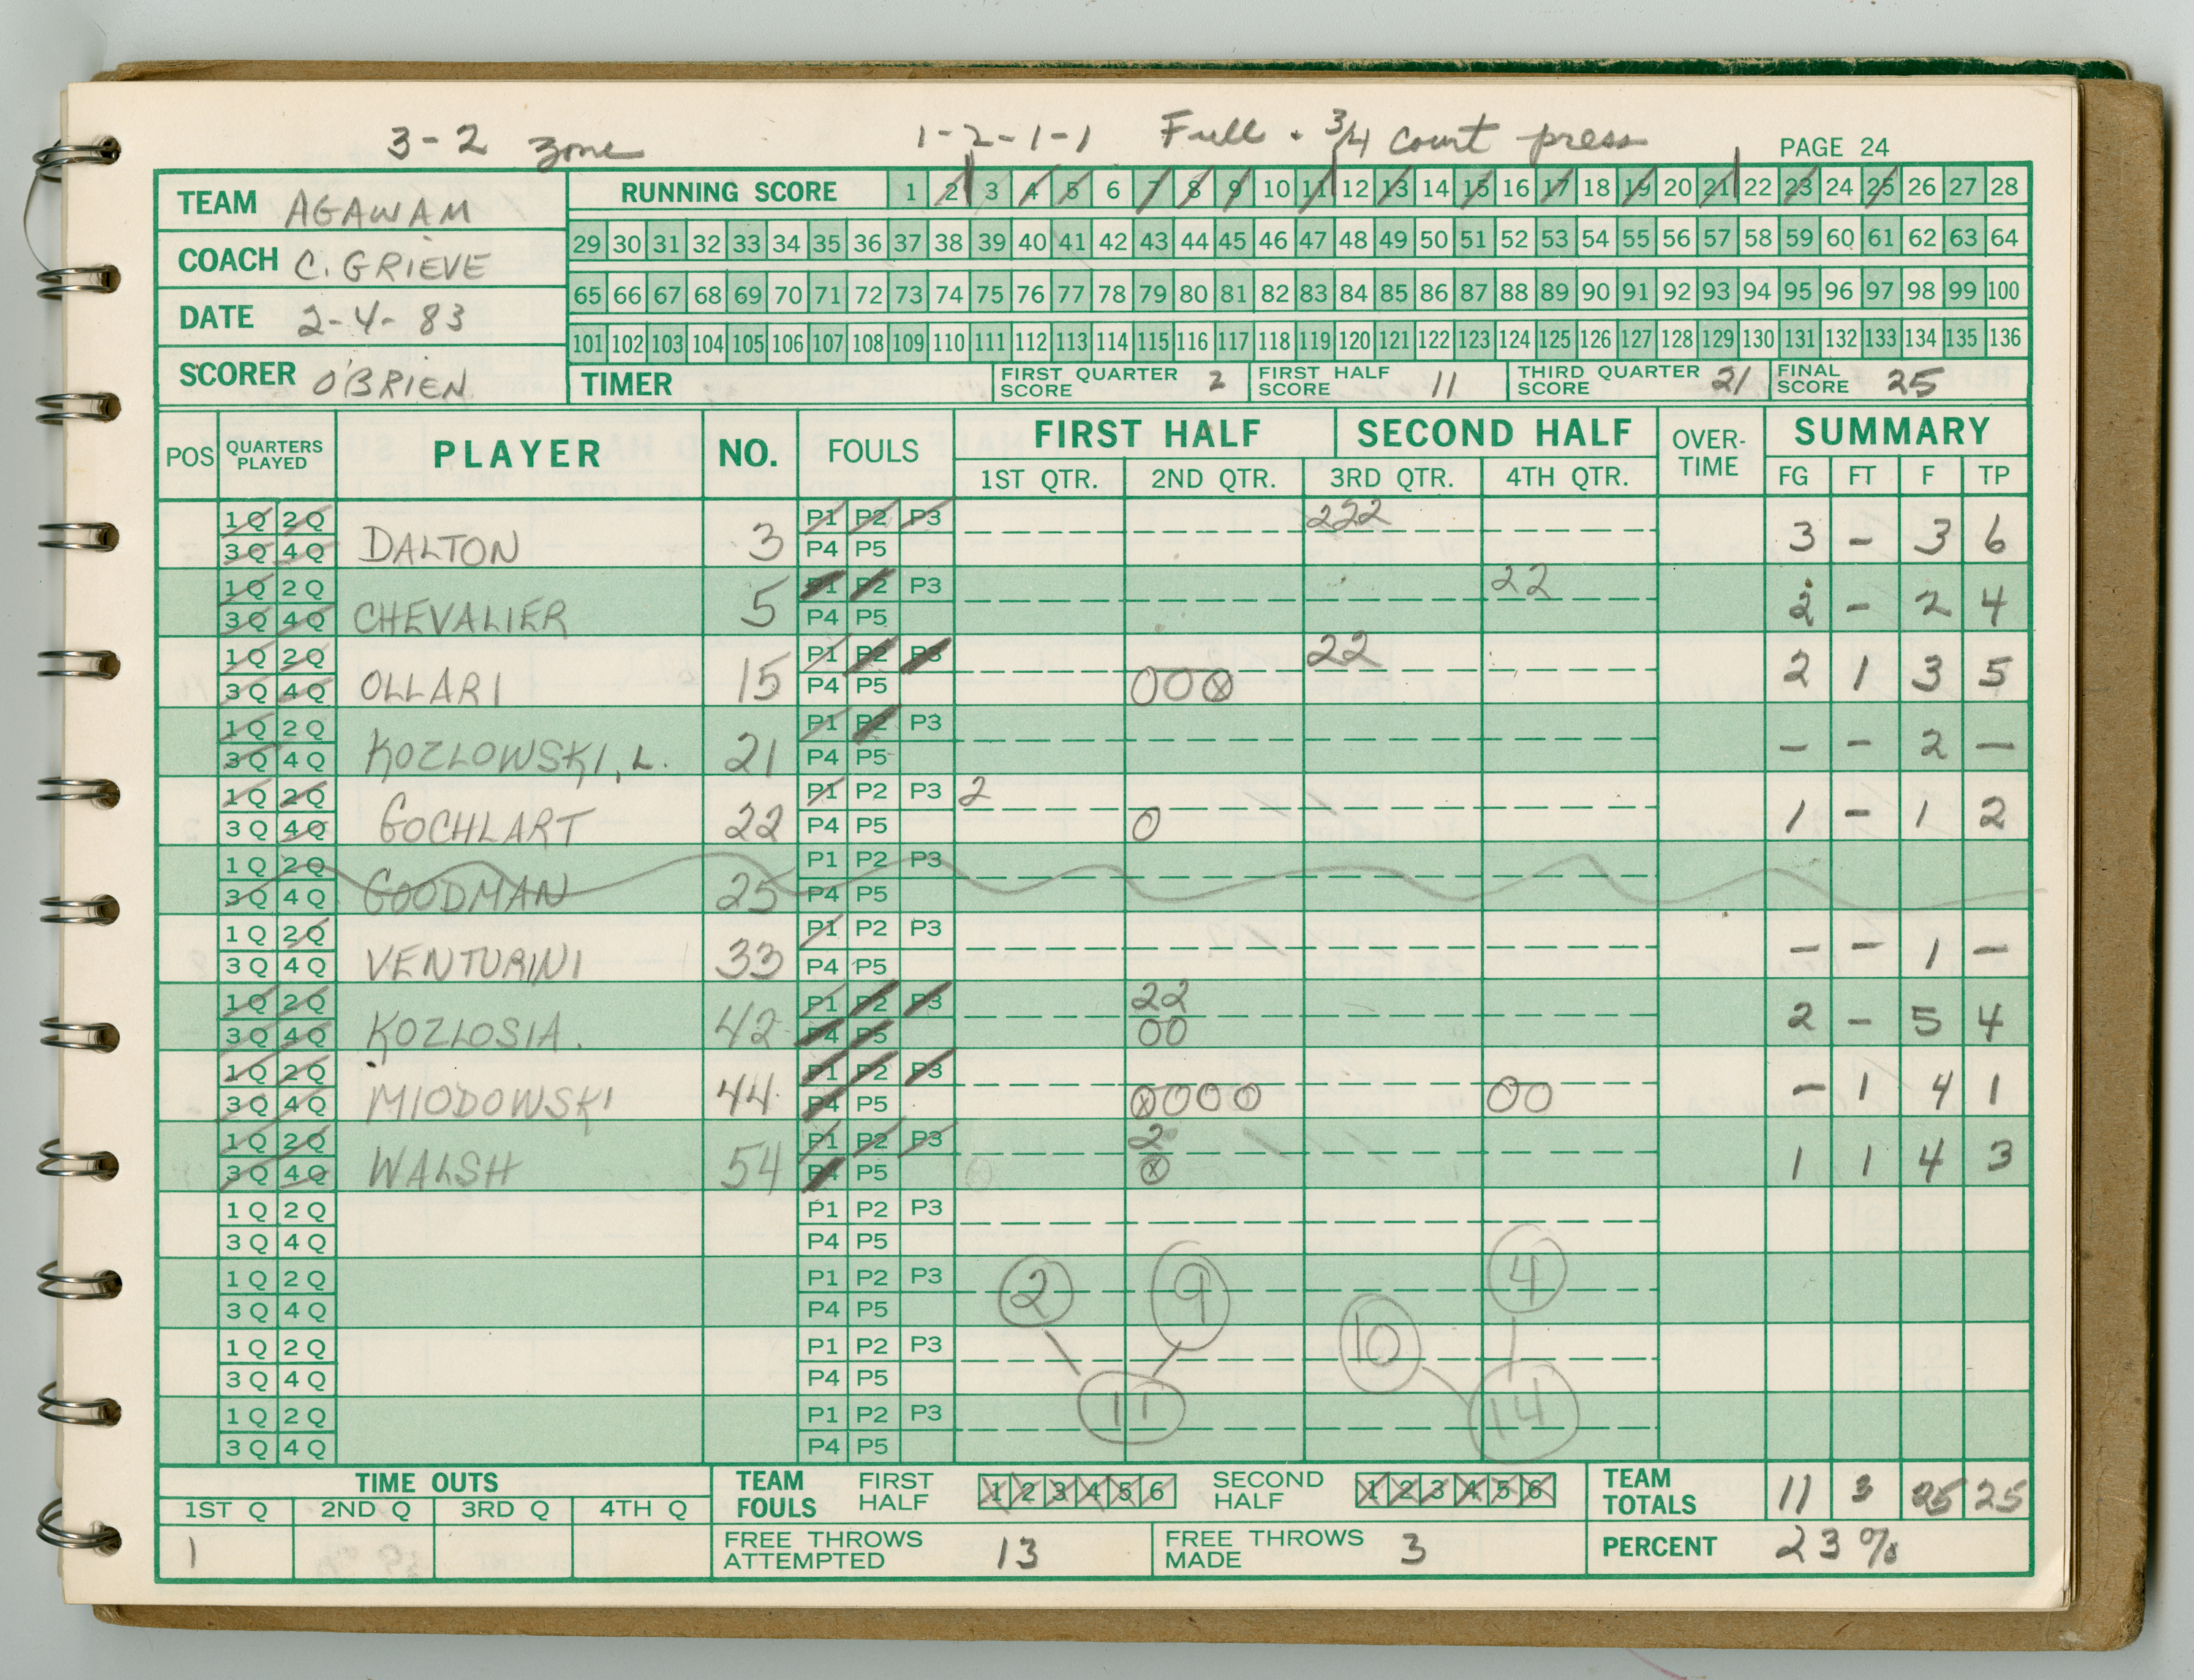 3-2 zone 1-2-1-1 Full + 3/4 court press PAGE 24
TEAM AGAWAM
COACH C. GRIEVE
DATE 2-4-83
SCORER O'BRIEN
RUNNING SCORE 1 2 3 4 5 6 7 8 9 10 11 12 13 14 15 16 17 18 19 20 21 22 23 24 25 26 27 28
29 30 31 32 33 34 35 36 37 38 39 40 41 42 43 44 45 46 47 48 49 50 51 52 53 54 55 56 57 58 59 60 61 62 63 64
65 66 67 68 69 70 71 72 73 74 75 76 77 78 79 80 81 82 83 84 85 86 87 88 89 90 91 92 93 94 95 96 97 98 99 100
101 102 103 104 105 106 107 108 109 110 111 112 113 114 115 116 117 118 119 120 121 122 123 124 125 126 127 128 129 130 131 132 133 134 135 136
TIMER FIRST QUARTER SCORE 2 FIRST HALF SCORE 11 THIRD QUARTER SCORE 21 FINAL SCORE 25
POS QUARTERS PLAYED PLAYER NO. FOULS FIRST HALF SECOND HALF OVER-TIME SUMMARY
1ST QTR. 2ND QTR. 3RD QTR. 4TH QTR. FG FT F TP
1Q 2Q P1 P2 P3 222
3Q 4Q DALTON 3 P4 P5 3 - 3 6
1Q 2Q P1 P2 P3 22
3Q 4Q CHEVALIER 5 P4 P5 2 - 2 4
1Q 2Q P1 P2 P3 22
3Q 4Q OLLARI 15 P4 P5 OO⊗ 2 1 3 5
1Q 2Q P1 P2 P3
3Q 4Q KOZLOWSKI, L. 21 P4 P5 - - 2 -
1Q 2Q P1 P2 P3 2
3Q 4Q GOCHLART 22 P4 P5 O 1 - 1 2
1Q 2Q P1 P2 P3
3Q 4Q GOODMAN 25 P4 P5
1Q 2Q P1 P2 P3
3Q 4Q VENTURINI 33 P4 P5 - - 1 -
1Q 2Q P1 P2 P3 22
3Q 4Q KOZLOSIA. 42 P4 P5 OO 2 - 5 4
1Q 2Q P1 P2 P3
3Q 4Q MIODOWSKI 44 P4 P5 ⊗OOO OO - 1 4 1
1Q 2Q P1 P2 P3 2
3Q 4Q WALSH 54 P4 P5 ⊗ 1 1 4 3
1Q 2Q P1 P2 P3
3Q 4Q P4 P5
1Q 2Q P1 P2 P3 2 9 4
3Q 4Q P4 P5
1Q 2Q P1 P2 P3 10
3Q 4Q P4 P5
1Q 2Q P1 P2 P3 11 14
3Q 4Q P4 P5
TIME OUTS TEAM FOULS FIRST HALF 1 2 3 4 5 6 SECOND HALF 1 2 3 4 5 6 TEAM TOTALS 11 3 25 25
1ST Q 2ND Q 3RD Q 4TH Q
1 FREE THROWS ATTEMPTED 13 FREE THROWS MADE 3 PERCENT 23%